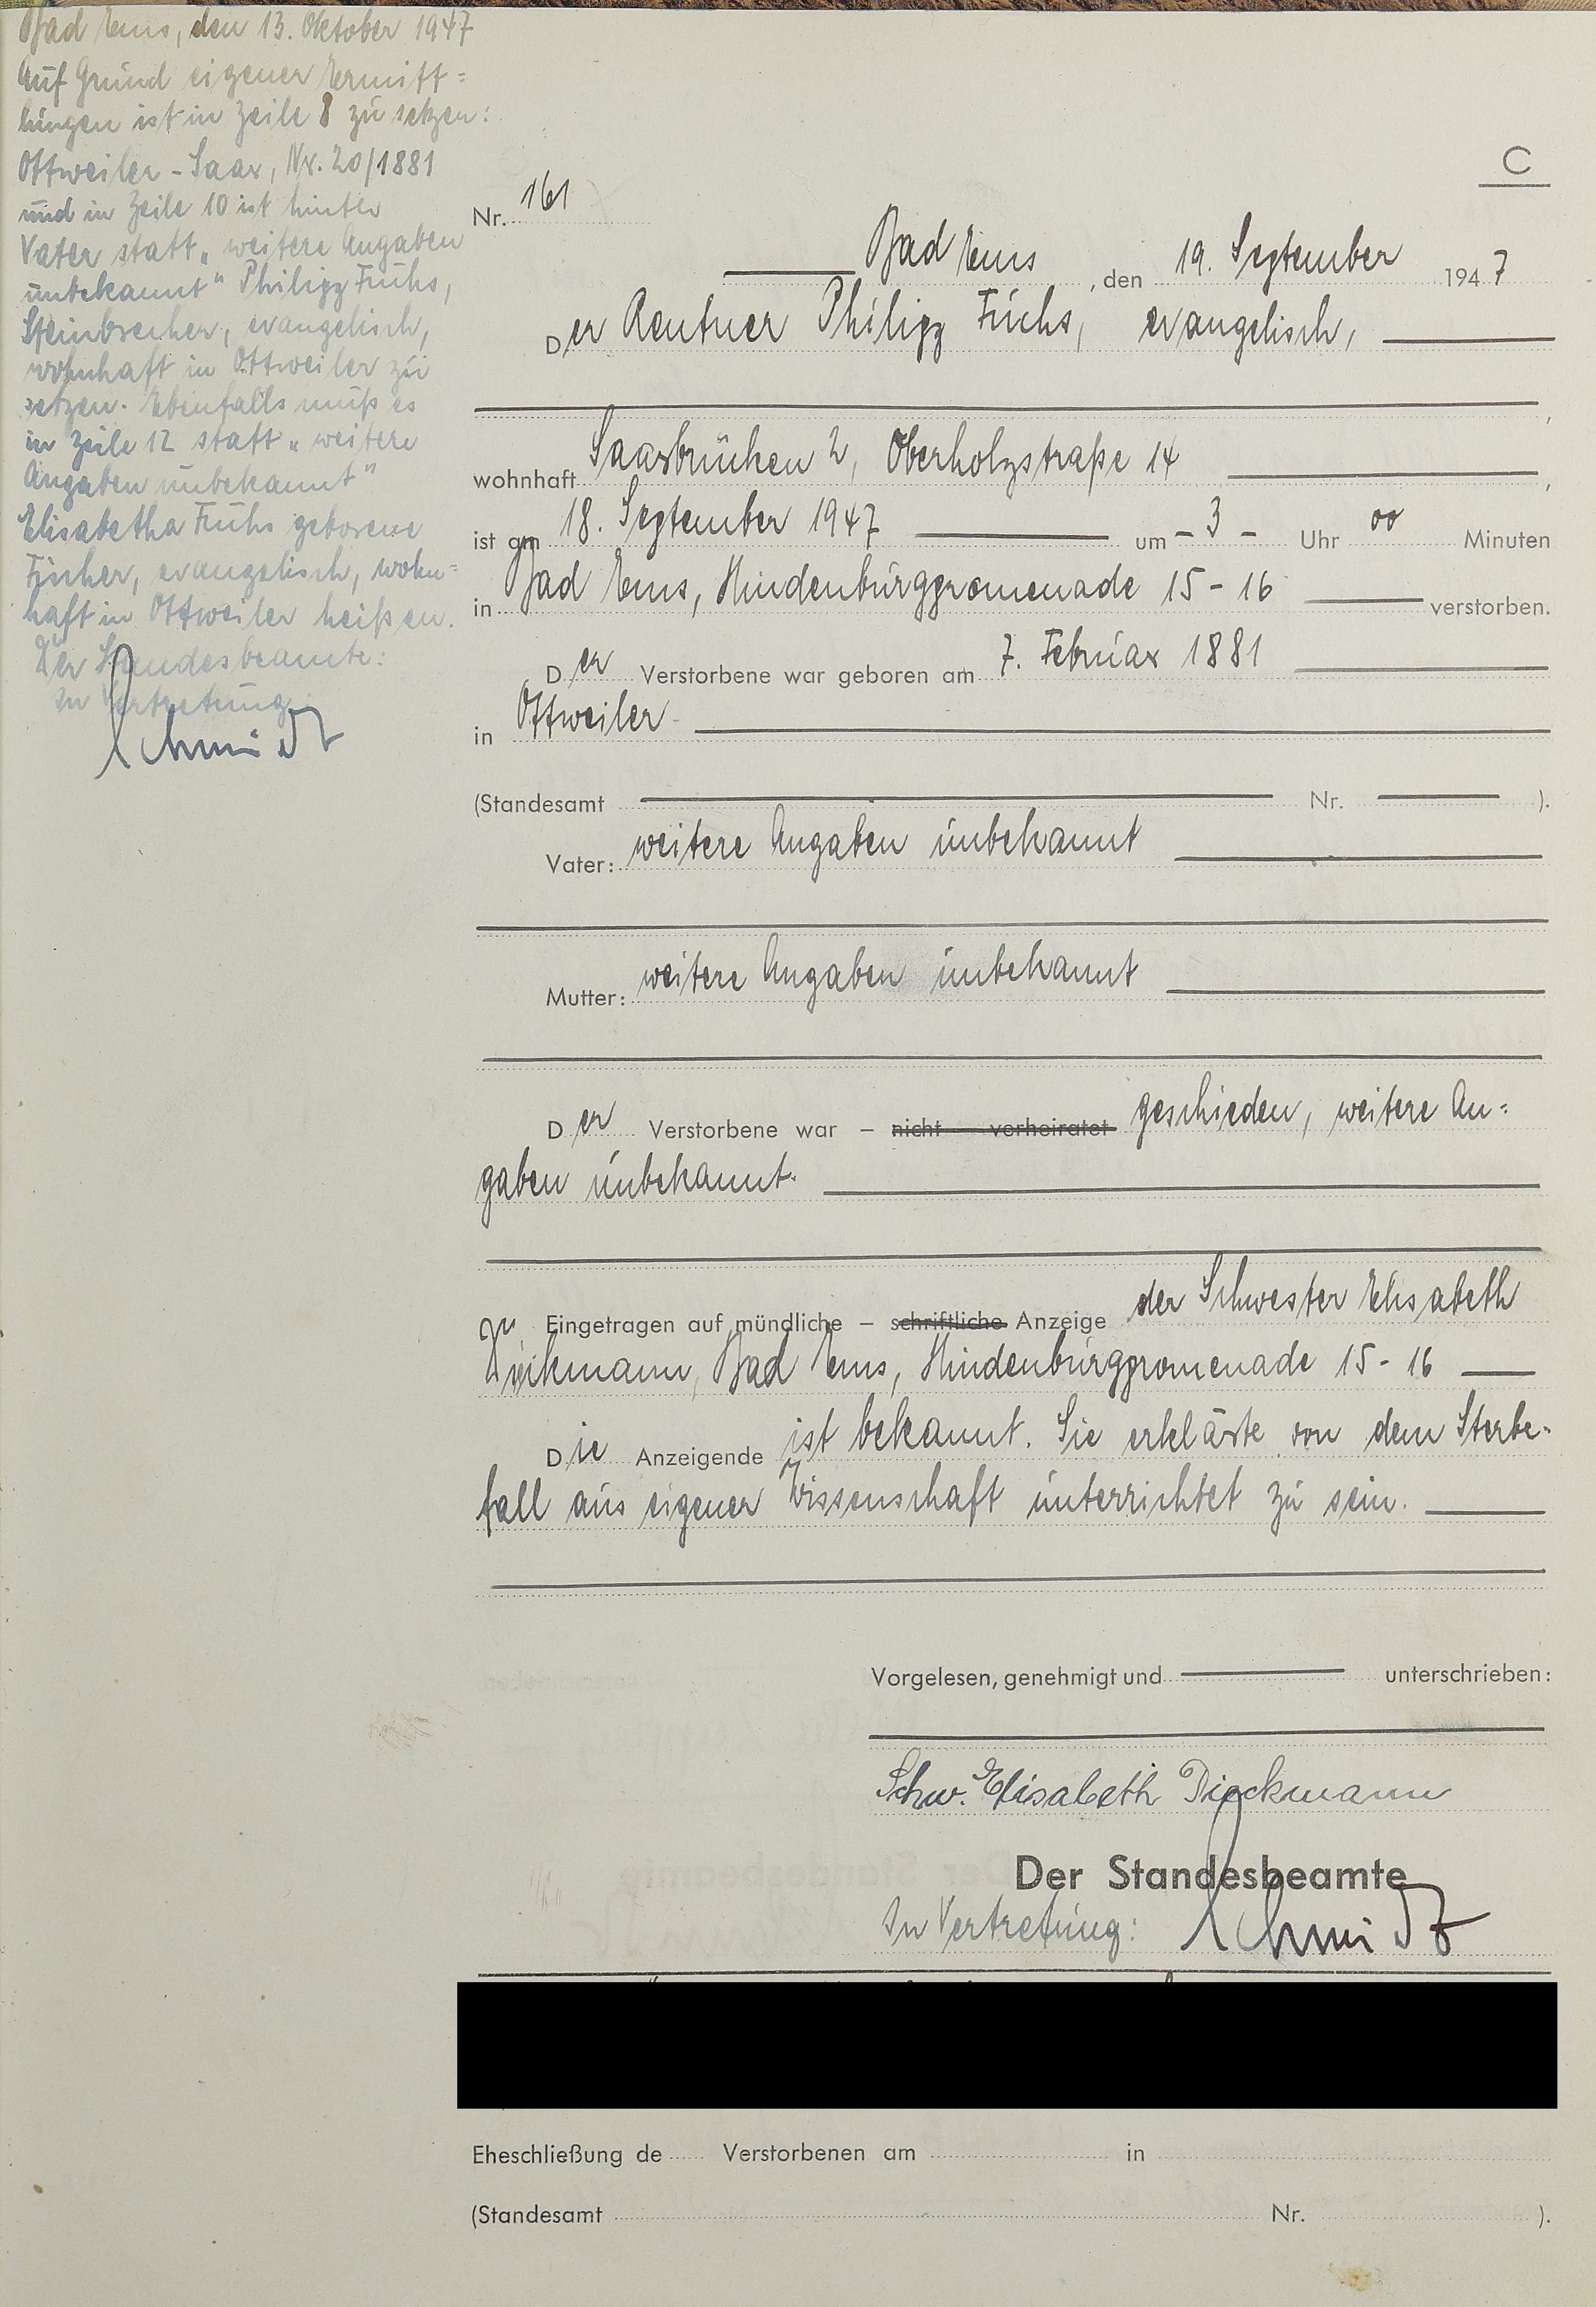 Bad Ems, den 13. Oktober 1947
Auf Grund eigener Ermitt=
lungen ist in Zeile 8 zu setzen:
Ottweiler - Saar, Nr. 20/1881
und in Zeile 10 ist hinter
Vater statt „weitere Angaben
unbekannt" Philipp Fuchs,
Steinbrecher, evangelisch,
wohnhaft in Ottweiler zu
setzen. Ebenfalls muß es
in Zeile 12 statt „weitere
Angaben unbekannt"
Elisabetha Fuchs geborene
Fischer, evangelisch, wohn=
haft in Ottweiler heißen.
Der Standesbeamte:
In Vertretung
Schmidt
C
Nr. 161
Bad Ems, den 19. September 1947
Der Rentner Philipp Fuchs, evangelisch,
,
wohnhaft Saarbrücken 2, Oberholzstraße 14 ,
ist am 18. September 1947 um - 3 - Uhr 00 Minuten
in Bad Ems, Hindenburgpromenade 15 - 16 verstorben.
Der Verstorbene war geboren am 7. Februar 1881
in Ottweiler
(Standesamt Nr. ).
Vater: weitere Angaben unbekannt
Mutter: weitere Angaben unbekannt
Der Verstorbene war – nicht verheiratet geschieden, weitere An=
gaben unbekannt.
Eingetragen auf mündliche – schriftliche Anzeige der Schwester Elisabeth
Dieckmann, Bad Ems, Hindenburgpromenade 15 - 16
Die Anzeigende ist bekannt. Sie erklärte von dem Sterbe-
fall aus eigener Wissenschaft unterrichtet zu sein.
Vorgelesen, genehmigt und unterschrieben:
Schw. Elisabeth Dieckmann
Der Standesbeamte
In Vertretung: Schmidt
Eheschließung de Verstorbenen am in
(Standesamt Nr. ).